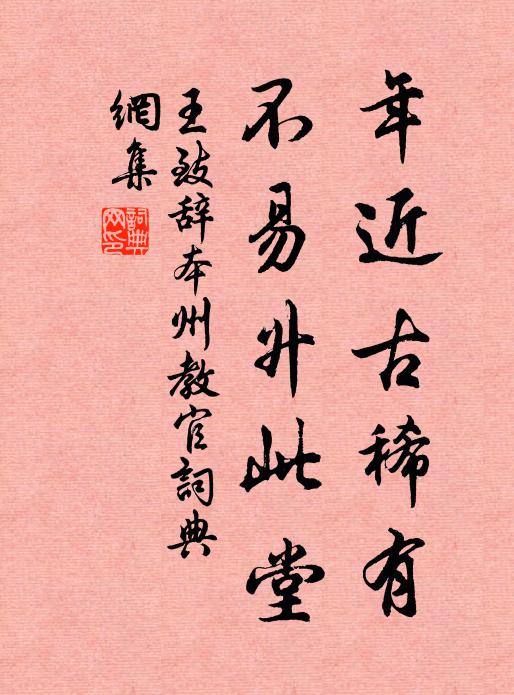 年近古稀有
不易升此堂
王致辞本州教官詞典
網集
詞典網印